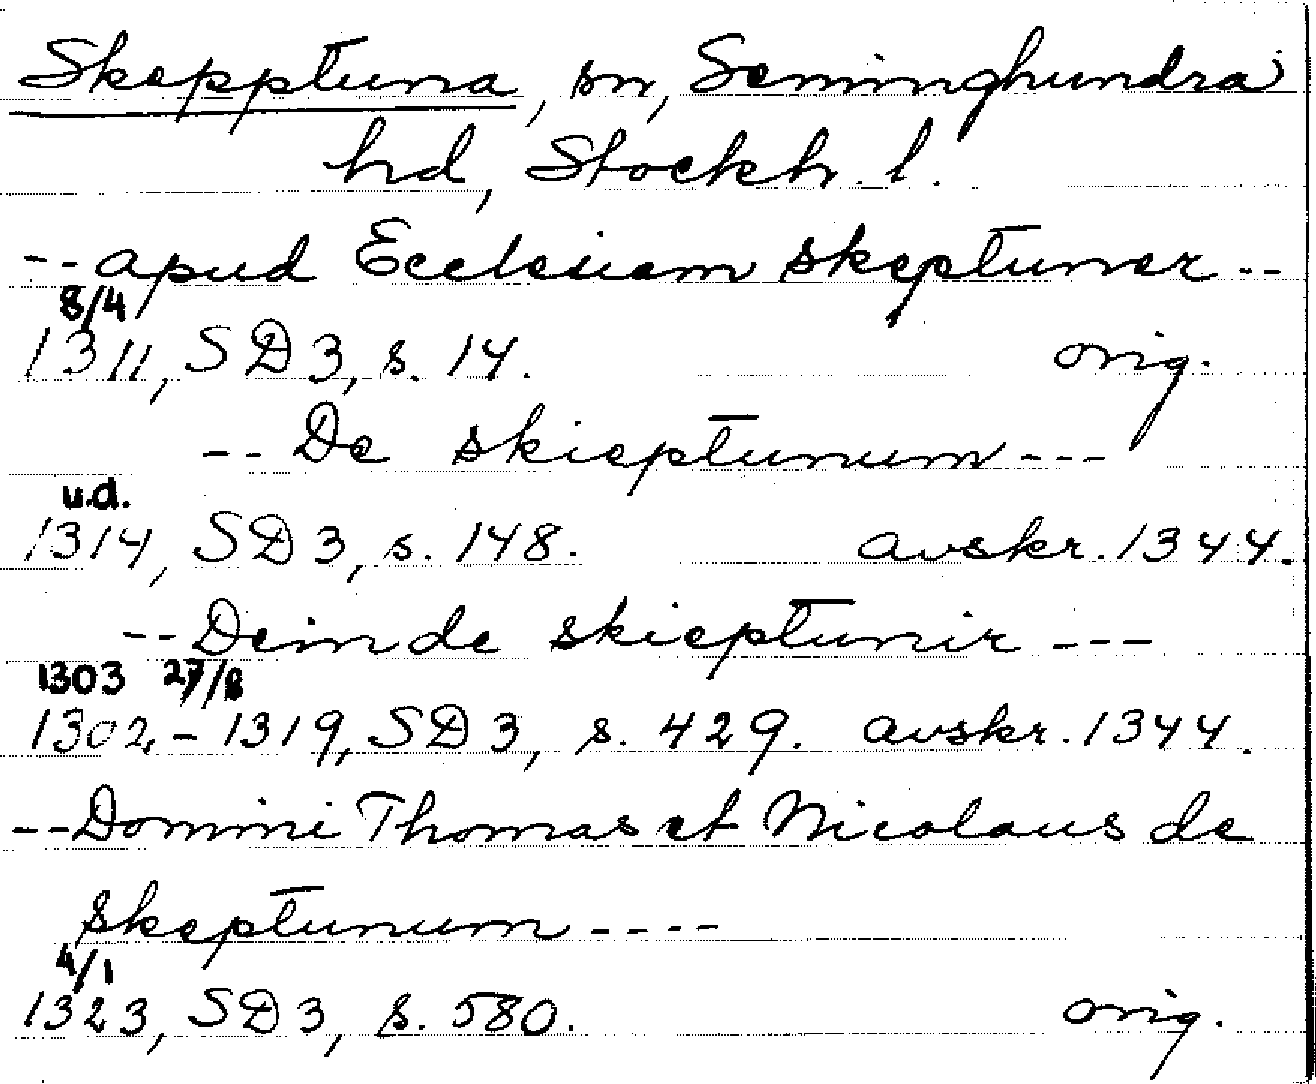 Skepptuna, sn, Seminghundra
hd, Stockh. l.
-- apud Ecclesiam skeptuner --
8/4
1311, SD 3, s. 14. orig.
-- De skieptunum ---
u.d.
1314, SD 3, s. 148. avskr. 1344.
-- Deinde skieptunir ---
1303 27/8
1302 - 1319, SD 3, s. 429. avskr. 1344.
-- Domini Thomas et Nicolaus de
skeptunum ----
4/1
1323, SD 3, s. 580. orig.